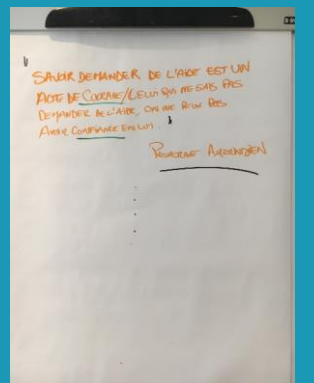 SAVOIR DEMANDER DE L'AIDE EST UN
ACTE DE COURAGE / CELUI QUI NE SAIS PAS
DEMANDER DE L'AIDE, ON NE PEUX PAS
AVOIR CONFIANCE EN LUI.
PROVERBE AMERINDIEN